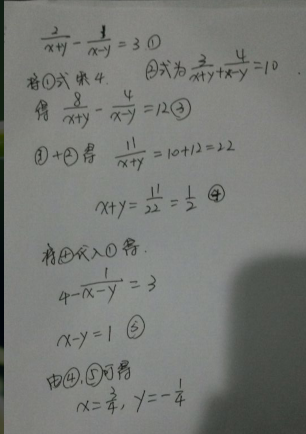 2/(x+y) - 1/(x-y) = 3 ①
将①式乘4. ②式为 3/(x+y) + 4/(x-y) = 10
得 8/(x+y) - 4/(x-y) = 12 ③
③+②得 11/(x+y) = 10+12 = 22
x+y = 11/22 = 1/2 ④
将④代入①得.
4 - 1/(x-y) = 3
x-y = 1 ⑤
由④,⑤可得
x = 3/4, y = -1/4